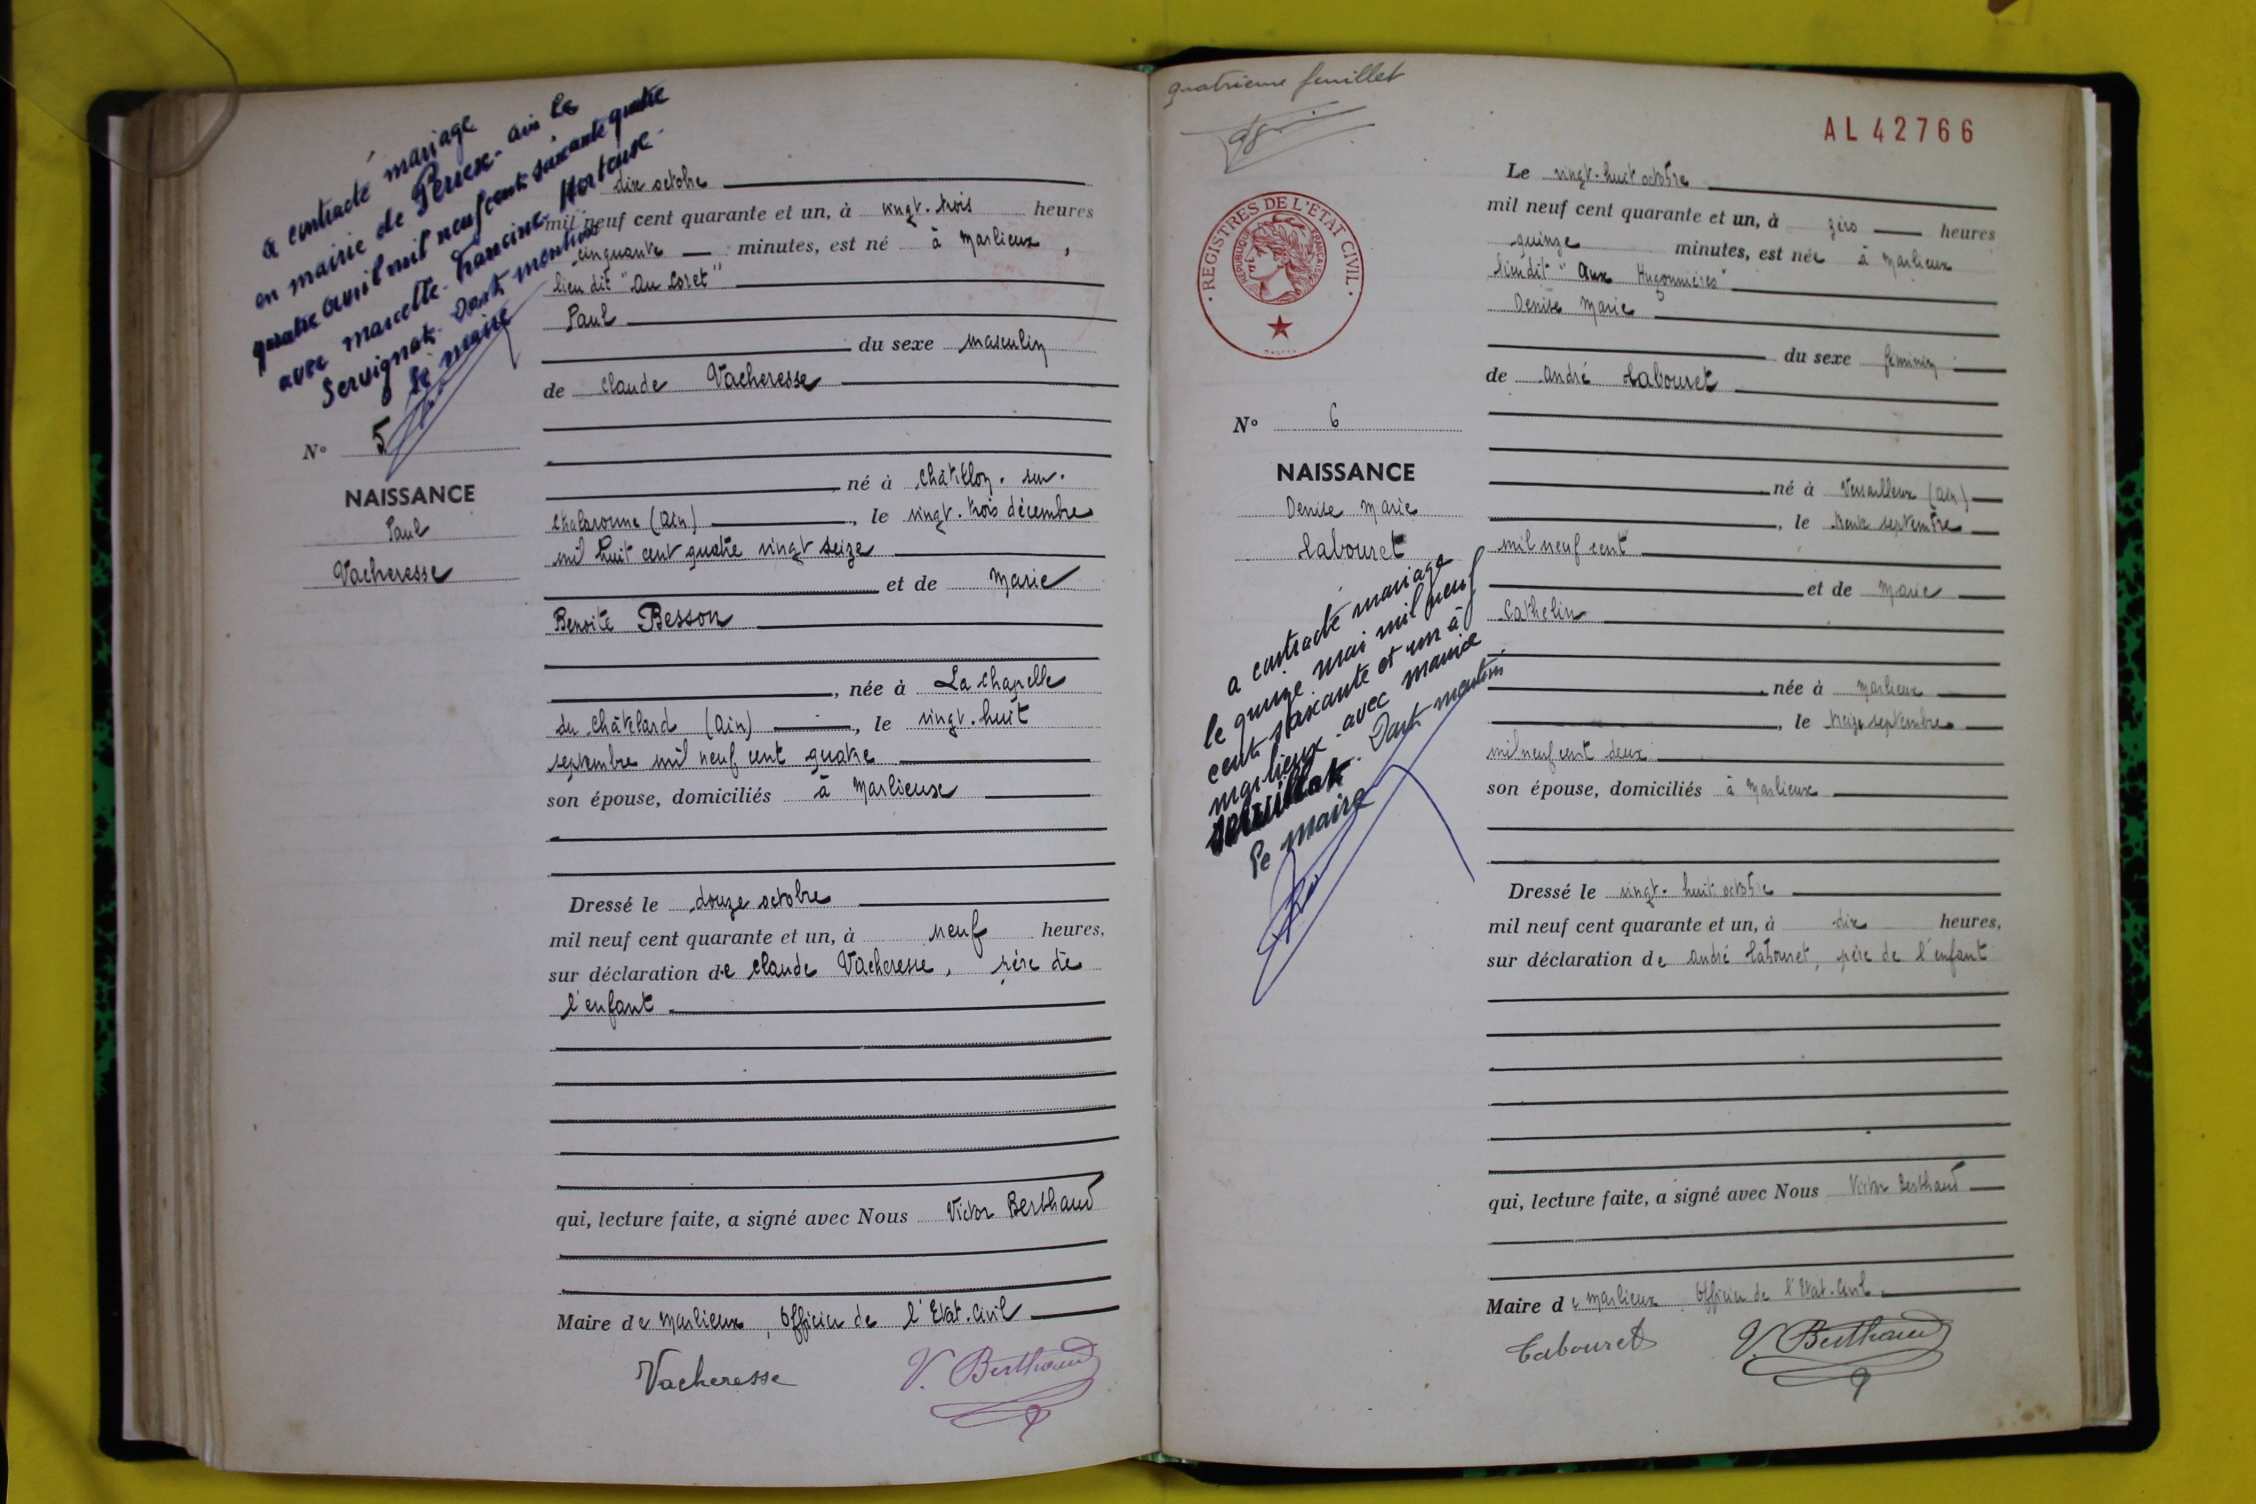 a contracté mariage
en mairie de Perrex - ain le
quatre avril mil neuf cent soixante quatre
avec Marcelle - Francine - Hortense -
Servignat. Dont mention
le maire
N° 5
NAISSANCE
Paul
Vacheresse
dix octobre
mil neuf cent quarante et un, à vingt-trois heures
cinquante minutes, est né à Marlieux,
lieu dit "au Loret"
Paul
du sexe masculin
de Claude Vacheresse
né à Châtillon-sur-
Chalaronne (Ain), le vingt-trois décembre
mil huit cent quatre vingt seize
et de Marie
Benoite Besson
, née à La Chapelle
du Châtelard (Ain), le vingt-huit
septembre mil neuf cent quatre
son épouse, domiciliés à Marlieux
Dressé le douze octobre
mil neuf cent quarante et un, à neuf heures,
sur déclaration de Claude Vacheresse, père de
l'enfant
qui, lecture faite, a signé avec Nous Victor Berthaud
Maire de Marlieux, Officier de l'Etat-Civil
Vacheresse V. Berthaud
quatrième feuillet
AL 42766
REGISTRES DE L'ETAT CIVIL
REPUBLIQUE FRANCAISE
N° 6
NAISSANCE
Denise Marie
Labouret
a contracté mariage
le quinze mai mil neuf
cent soixante et un à
Marlieux avec Maurice
Servillat. Dont mention
Le maire
Le vingt-huit octobre
mil neuf cent quarante et un, à zéro heures
quinze minutes, est née à Marlieux
lieu dit "Aux Hugonnières"
Denise Marie
du sexe féminin
de André Labouret
né à Versailleux (Ain)
, le
mil neuf cent
et de Marie
Cathelin
, née à Marlieux
, le treize septembre
mil neuf cent deux
son épouse, domiciliés à Marlieux
Dressé le vingt-huit octobre
mil neuf cent quarante et un, à dix heures,
sur déclaration de André Labouret, père de l'enfant
qui, lecture faite, a signé avec Nous Victor Berthaud
Maire de Marlieux, Officier de l'Etat-Civil
Labouret V. Berthaud